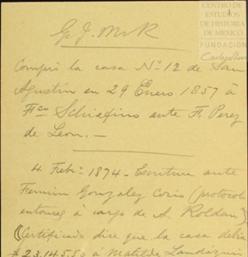 CENTRO DE
ESTUDIOS
DE HISTORIA
DE MEXICO
FUNDACIÓN
Carlos Slim
G. J. M. R
Compró la casa Nº 12 de San
Agustin en 29 Enero 1857 á
Fco Schiafino ante F. Perez
de Leon. —
4. Febº 1874. Escritura ante
Fermin Gonzalez Cosio (protocolo
entonces a cargo de A. Roldan)
Certificado dice que la casa debia
$ 23,145.50 á Matilde